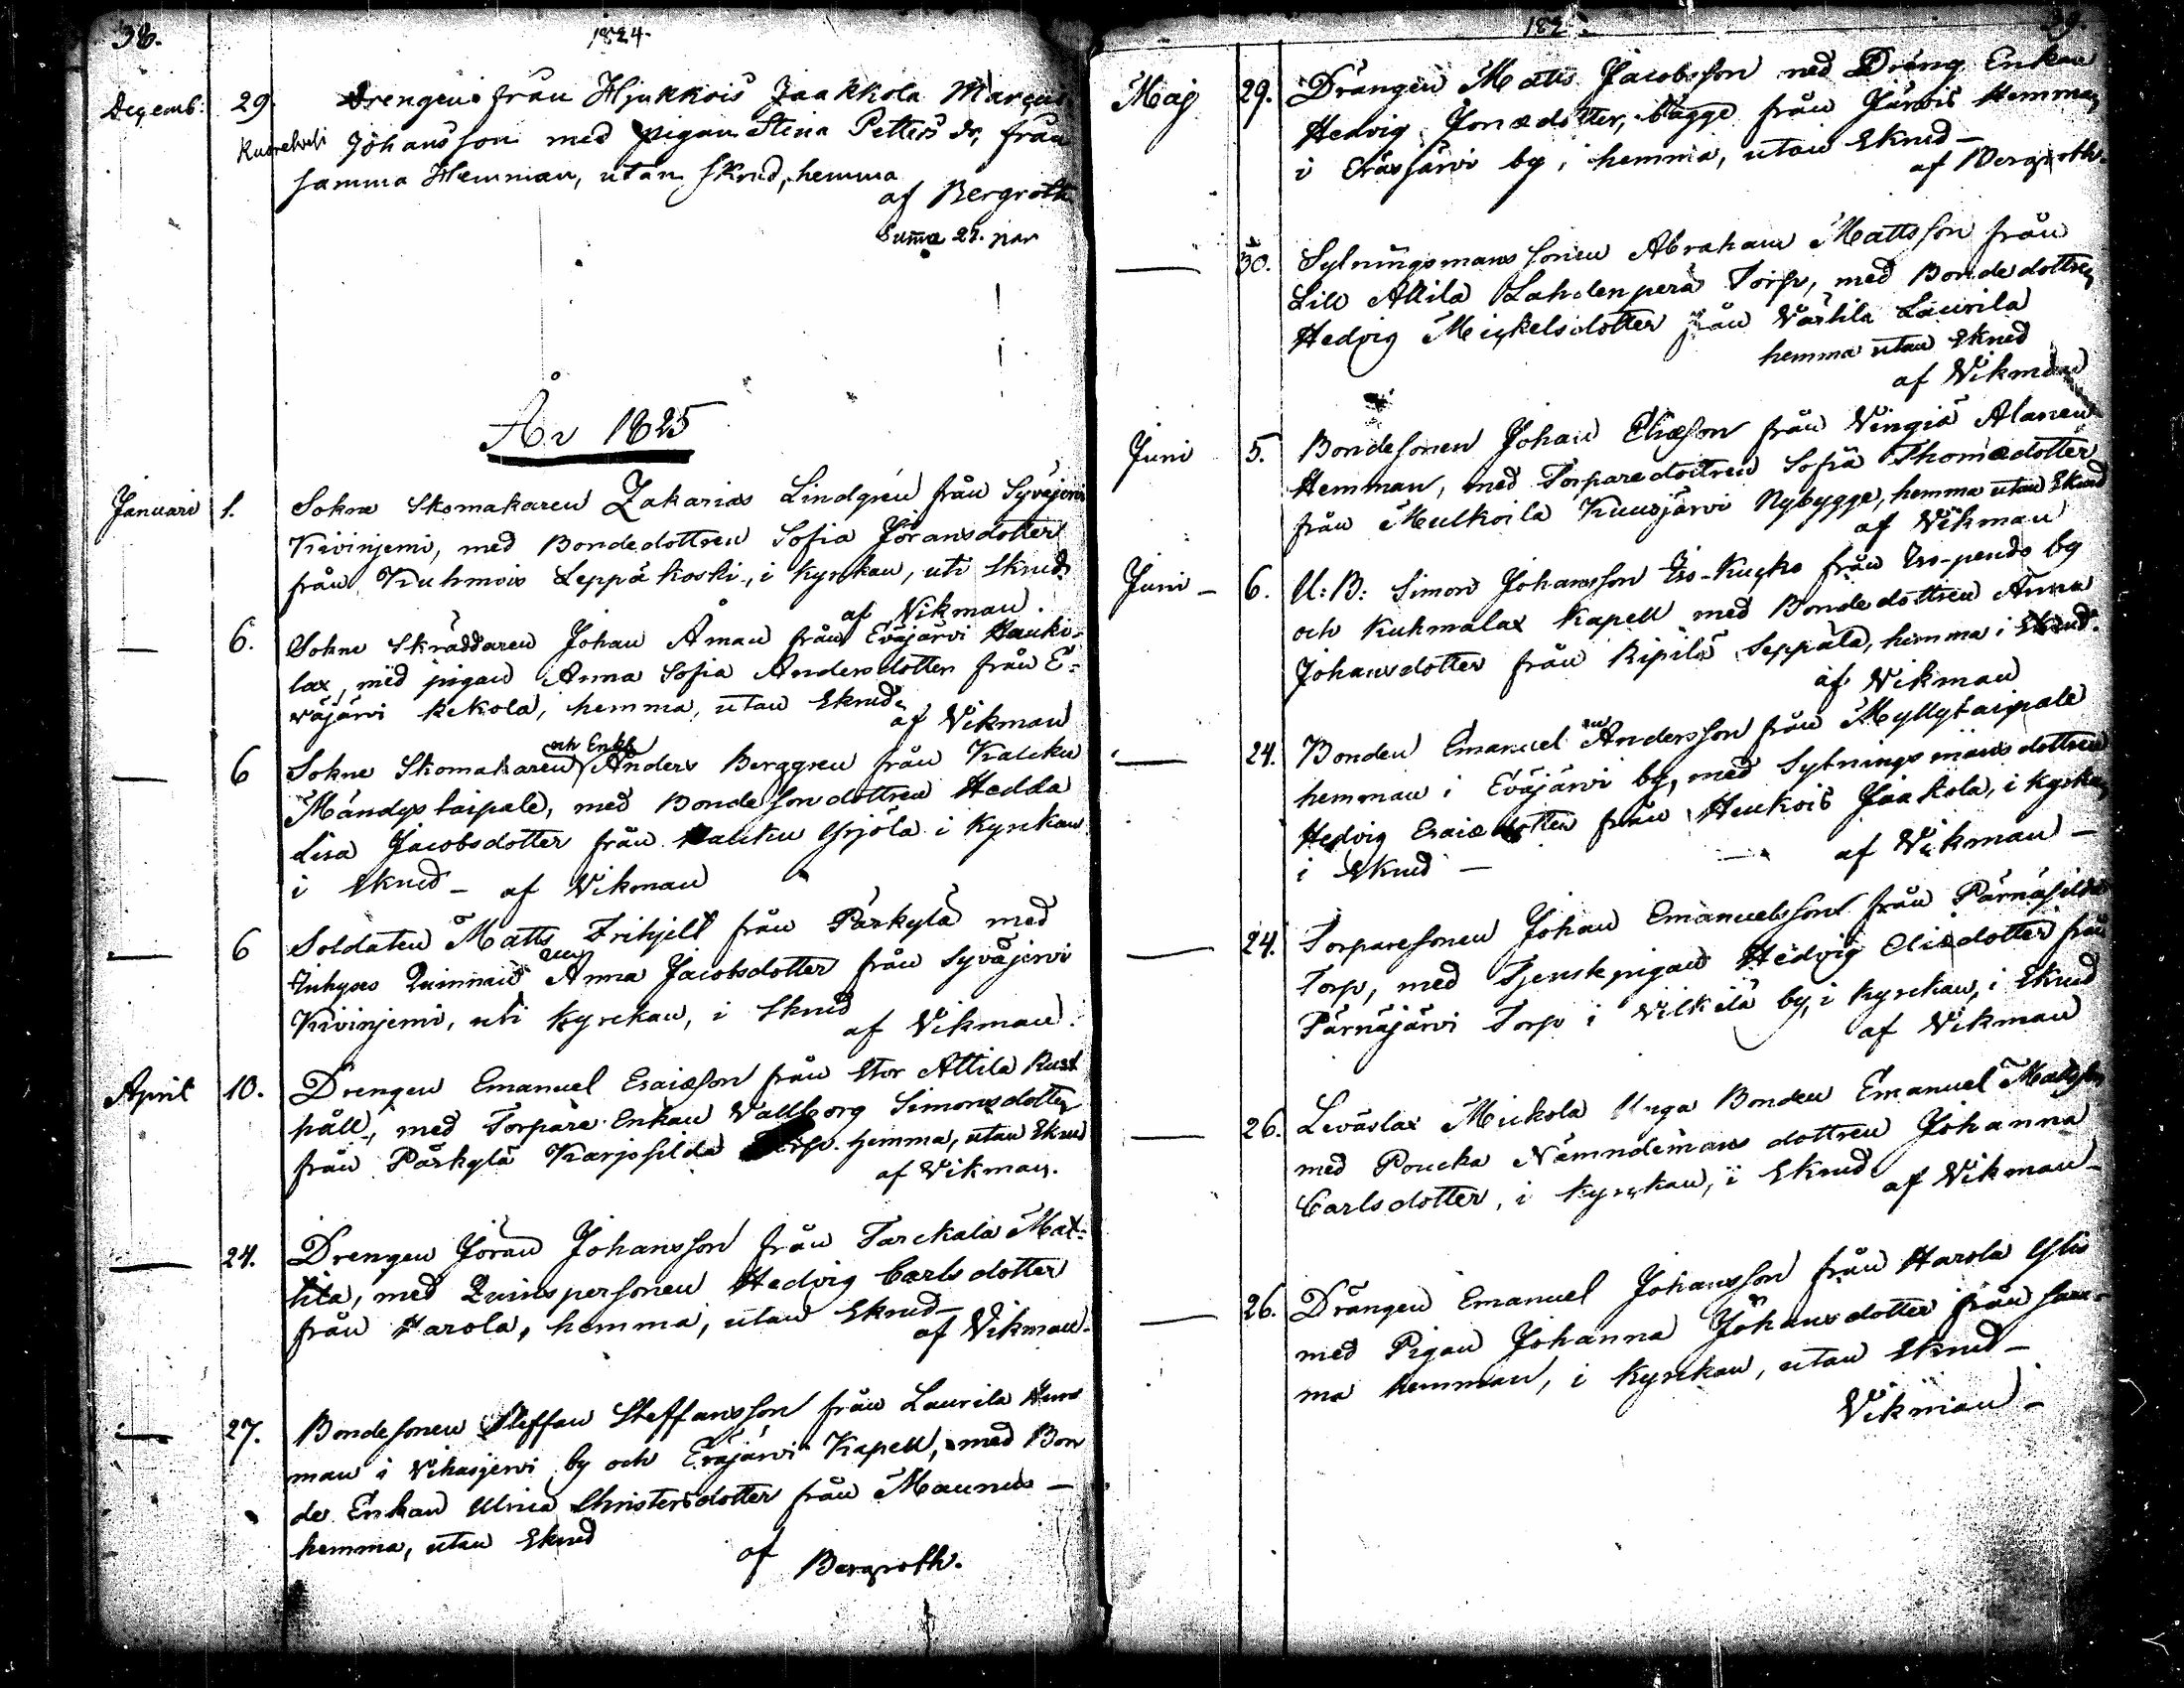 38.
1824.
Decemb: 29. Drengen från Hjukkois Jaakkola Marcus
Johansson med pigan Stina Petters dr, från
samma Hemman, utan skrud, hemma
af Bergroth
Suma 27. par
År 1825
Januari 1. Sokne Skomakaren Zakarias Lindgren från Syväjervi
Kivinjemi, med Bondedottren Sofia Jöransdotter
från Kuhmois Leppäkoski, i kyrkan, uti Skrud.
af Vikman.
— 6. Sokne Skräddaren Johan Åman från Eväjärvi Hauki-
lax, med pigan Anna Sofia Andersdotter från E-
väjärvi Kekola, hemma, utan Skrud.
af Vikman
och Enkl.
— 6 Sokne Skomakaren Anders Berggren från Kalcku
Mändystaipale, med Bondesonsdottren Hedda
Lisa Jacobsdotter från Yrjölä i Kyrckan
i Skrud – af Vikman
— 6 Soldaten Matts Frihjelt från Pärkylä med
Inhyses Quinnan Anna Jacobsdotter från Syväjervi
Kivinjemi, uti Kyrckan, i Skrud
af Vikman.
April 10. Drengen Emanuel Esaiæson från Stor Attila Rust
håll, med Torpare Enkan Vallborg Simonsdotter
från Pärkylä Torp. hemma, utan Skrud
af Vikman.
— 24. Drengen Jöran Johansson från Tarckala Mat-
tila, med Quinspersonen Hedvig Carlsdotter
från Harola, hemma, utan Skrud –
af Vikman.
— 27. Bondesonen Steffan Steffansson från Laurila Hem
man i Vihasjervi by och Eräjärvi Kapell, med Bon
de Enkan Ulrica Christersdotter från Maunus –
hemma, utan Skrud
af Bergroth.
182
Maj 29. Drängen Matts Jacobsson med Dräng Enkan
Hedvig Jonædotter, bägge från Järvis Hemman
i by, hemma, utan Skrud –
af Bergroth.
— 30. Sytningsmans sonen Abraham Mattsson från
Lill Attila Lahdenperä Torp, med Bondedottren
Hedvig Mickelsdotter från Västilä Laurila
hemma utan Skrud
af Vikman
Juni 5. Bondesonen Johan Eliæson från Vingiä Alanen
Hemman, med Torparedottren Sofia Thomædotter
från Mulkoila Kuusjärvi Nybygge, hemma utan Skrud
af Vikman
Juni – 6. U:B: Simon Johansson Iso-Kucko från
och Kuhmalax Kapell med Bondedottren Anna
Johansdotter från Ripilä Seppälä, hemma i Skrud.
af Vikman
— 24. Bonden Emanuel Andersson från Myllytaipale
hemman i Eväjärvi by, med Sytningsmansdottren
Hedvig Esaiædotter från Jaakola, i kyrkan
i Skrud – af Vikman –
— 24. Torparesonen Johan Emanuelsson från
Torp, med Tjenstepigan Hedvig Eliædotter från
Pärnäjärvi Torp i Vilkilä by, i Kyrckan, i Skrud
af Vikman
— 26. Leväslax Mickola Unga Bonden Emanuel
med Poucka Nämndemans dottren Johanna
Carlsdotter, i Kyrckan, i Skrud
af Vikman –
— 26. Drängen Emanuel Johansson från Harola
med Pigan Johanna Johansdotter från sam-
ma hemman, i Kyrckan, utan Skrud –
Vikman –